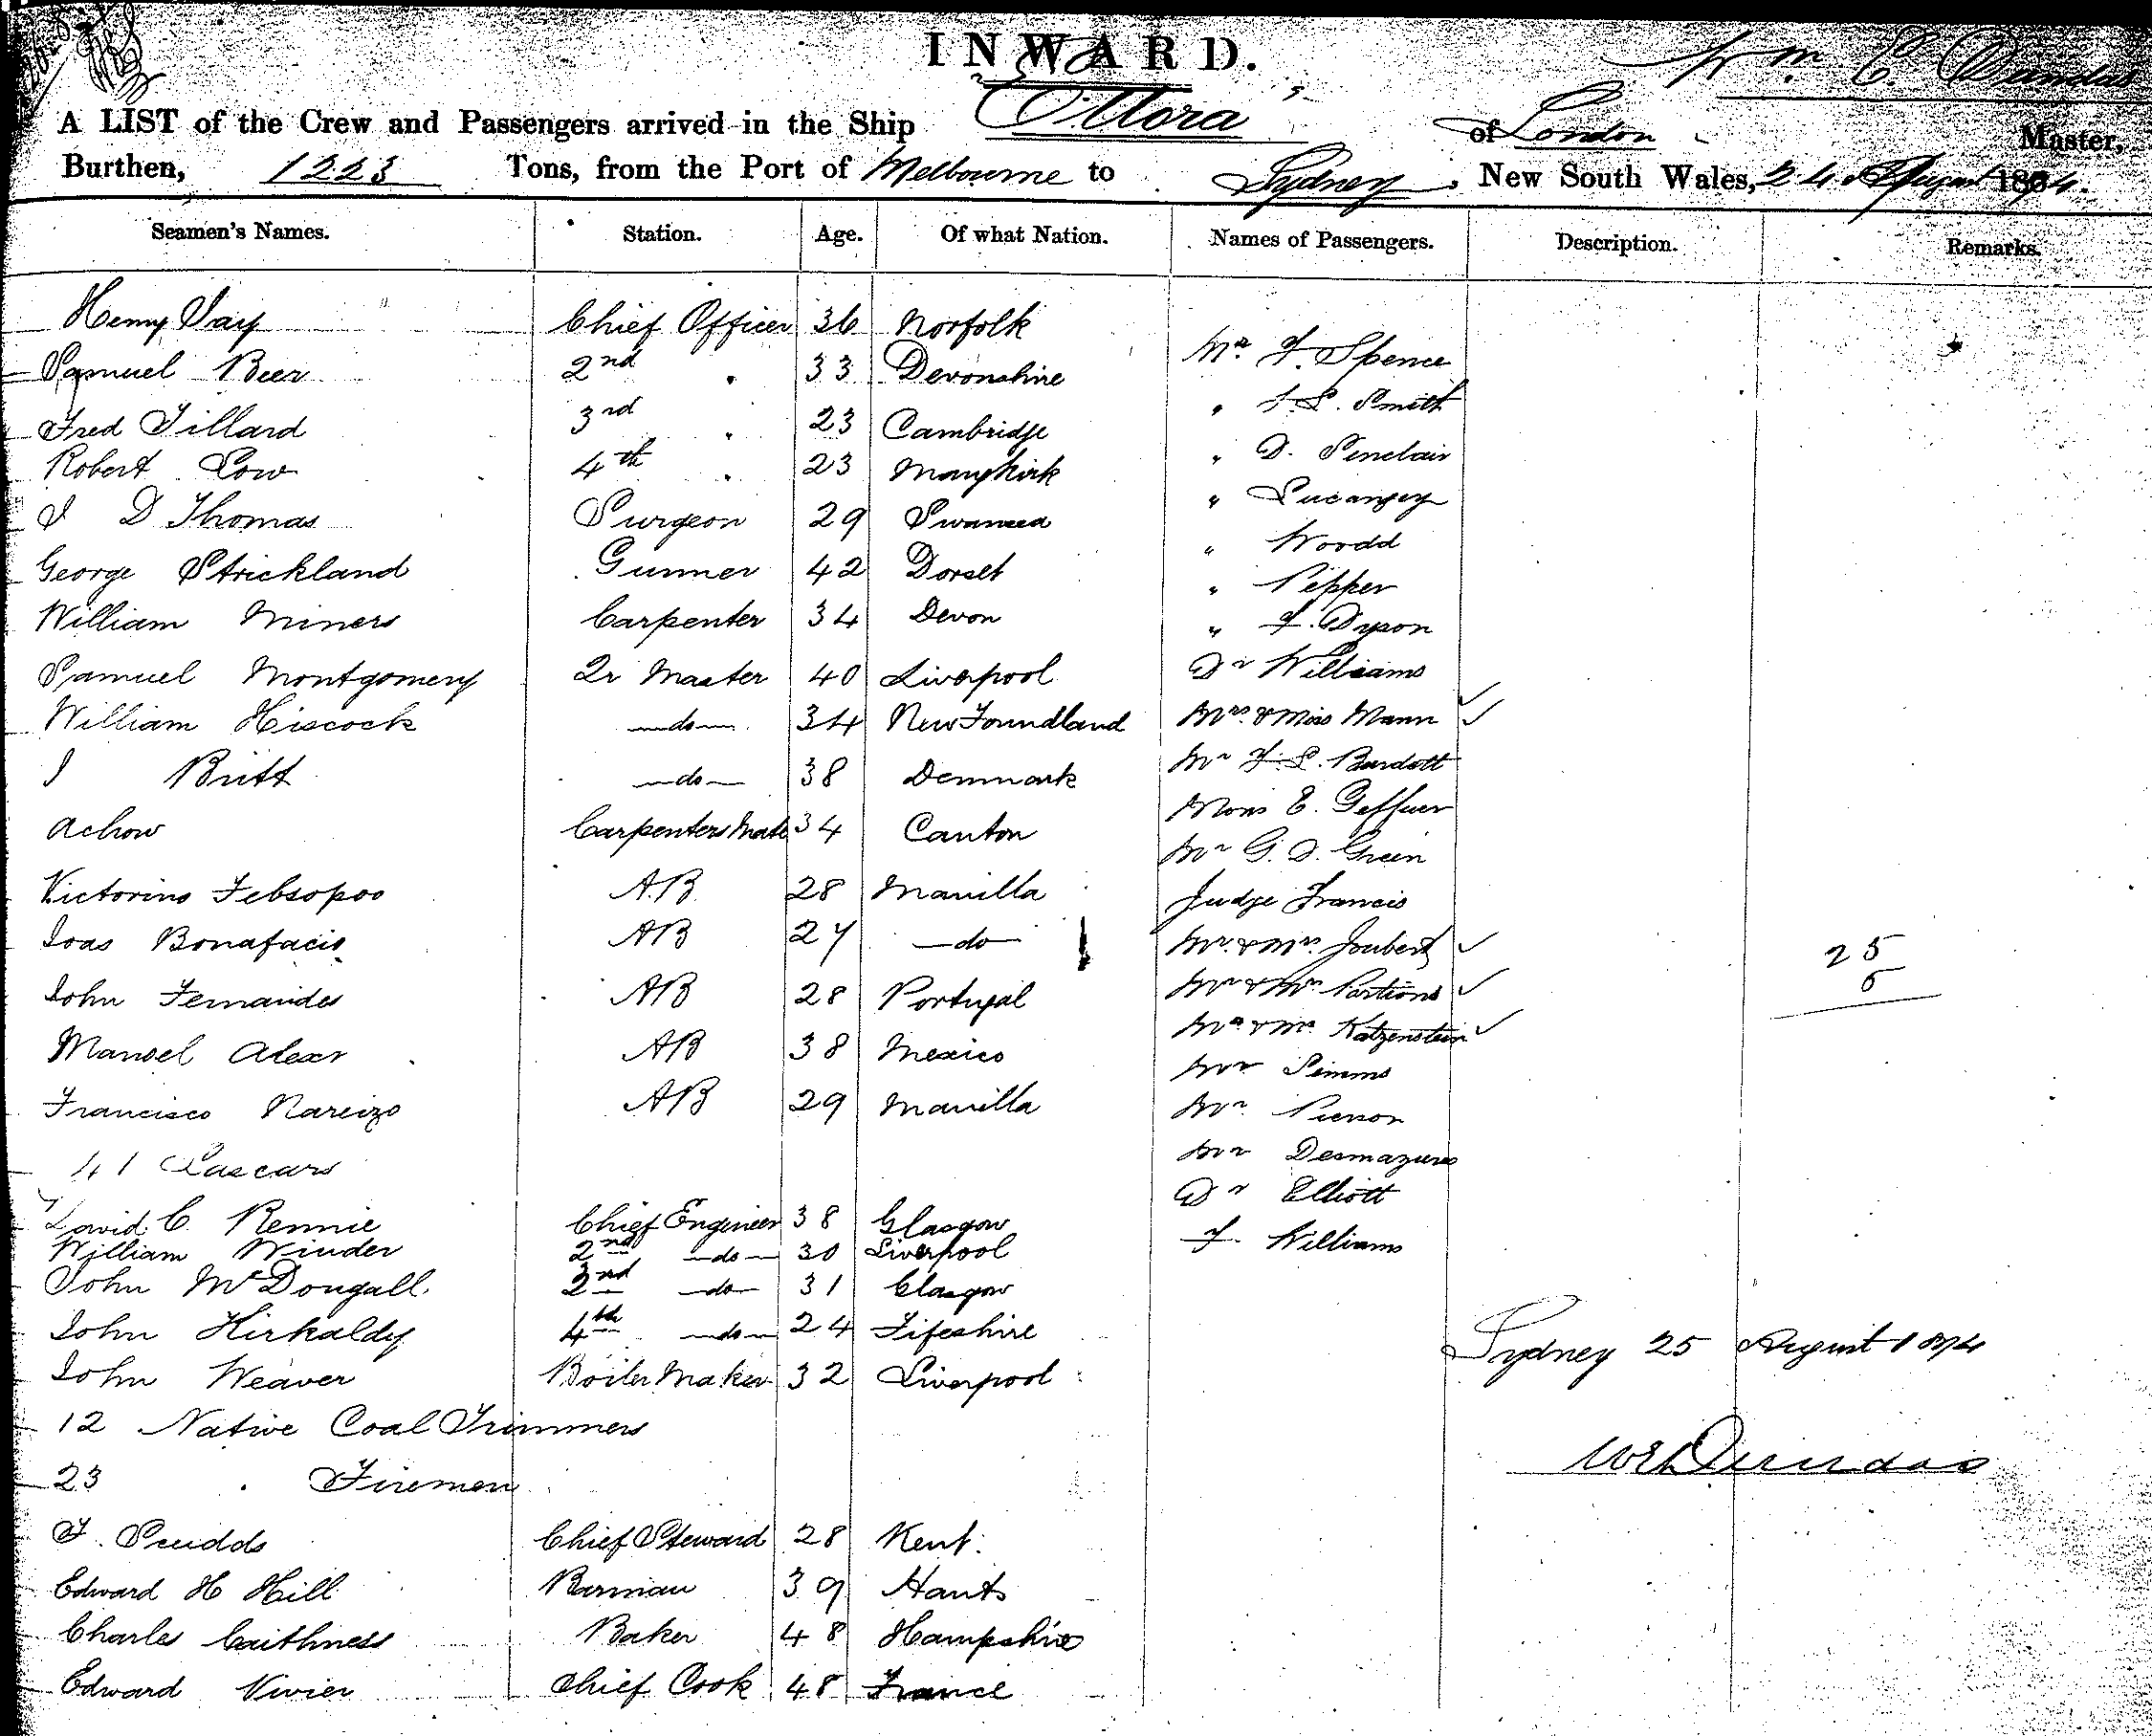 INWARD.
Wm C Dundas
A LIST of the Crew and Passengers arrived in the Ship of London Master,
Burthen, 1223 Tons, from the Port of Melbourne to Sydney, New South Wales, 24 August 1874.
Seamen's Names. Station. Age. Of what Nation. Names of Passengers. Description. Remarks.
Henry Chief Officer 36 Norfolk
Mr F. Spence
Samuel Beer 2nd " 33 Devonshire
" Smith
Fred Tillard 3rd " 23 Cambridge
" D. Sinclair
Robert Low 4th " 23 Marykirk
"
D Thomas Surgeon 29 Swansea
" Woodd
George Strickland Gunner 42 Dorset
" Pepper
William Miners Carpenter 34 Devon
" F. Dyson
Samuel Montgomery Qr Master 40 Liverpool
Dr Williams
William Hiscock —do— 34 New Foundland
Mrs & Miss Mann
Britt —do— 38 Denmark
Mr F. L. Burdott
Achow Carpenters Mate 34 Canton
Mons E.
Mr G. Green
Victorino A.B. 28 Manilla
Judge Francis
Bonafacio AB 27 —do—
Mr & Mrs Joubert
25
John Fernandes AB 28 Portugal
Mr & Mrs
5
Manoel Alexr AB 38 Mexico
Mr & Mrs Katzenstein
Mr Simms
Francisco Narcizo AB 29 Manilla
Mr
Mr Desmazures
41 Lascars
Dr Elliott
David C. Rennie Chief Engineer 38 Glasgow
F. Williams
William Winder 2nd —do— 30 Liverpool
John McDougall 3rd —do— 31 Glasgow
John Kirkaldy 4th —do— 24 Fifeshire
Sydney 25 August 1874
John Weaver Boiler Maker 32 Liverpool
12 Native Coal Trimmers
W E C Dundas
23 " Firemen
F. Chief Steward 28 Kent.
Edward H Hill Barman 39 Hants
Charles Caithness Baker 48 Hampshire
Edward Vivier Chief Cook 48 France